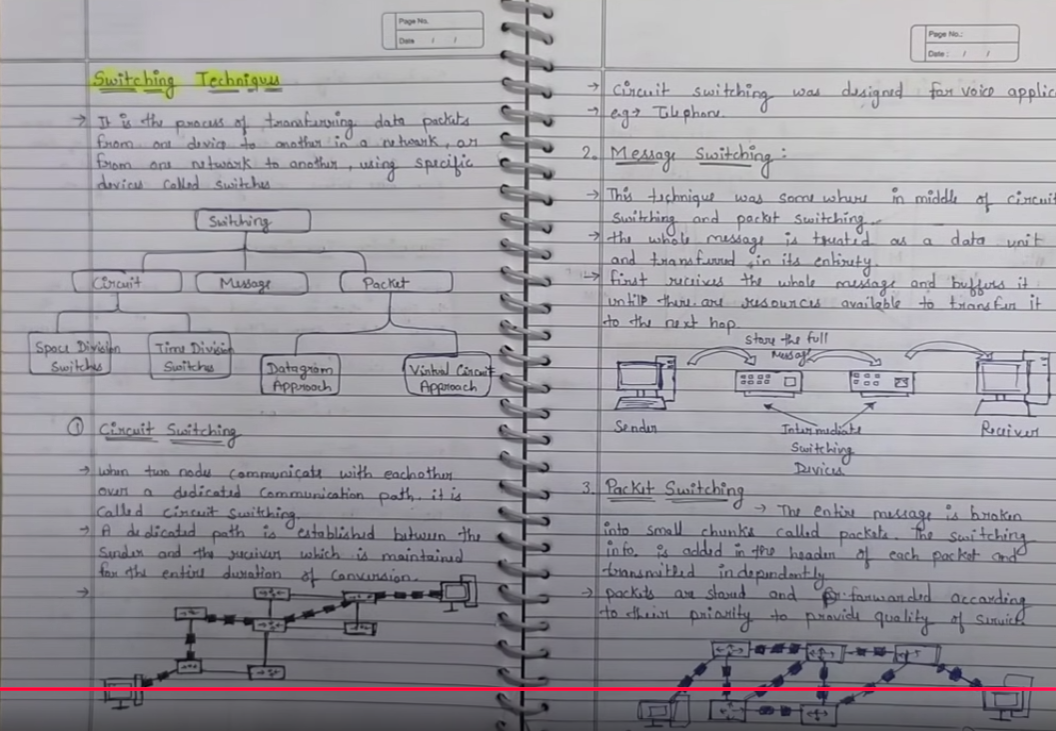 Page No.
Date / /
Switching Techniques
→ It is the process of transferring data packets
from one device to another in a network, or
from one network to another, using specific
devices called switches
Switching
Circuit
Message
Packet
Space Division
Switches
Time Division
Switches
Datagram
Approach
Virtual Circuit
Approach
① Circuit Switching
→ when two nodes communicate with eachother
over a dedicated communication path. it is
called circuit switching.
→ A dedicated path is established between the
sender and the receiver which is maintained
for the entire duration of conversion.
→
Page No.:
Date: / /
→ Circuit switching was designed for voice applic
→ eg→ Telephone.
2. Message Switching:
→ This technique was some where in middle of circuit
switching and packet switching.
→ the whole message is treated as a data unit
and transferred in its entirety.
→ first receives the whole message and buffers it
until there are resources available to transfer it
to the next hop.
store the full
Message
Sender
Intermediate
Switching
Devices
Receiver
3. Packet Switching
→ The entire message is broken
into small chunks called packets. The switching
info. is added in the header of each packet and
transmitted independently
→ packets are stored and forwarded according
to their priority to provide quality of service.